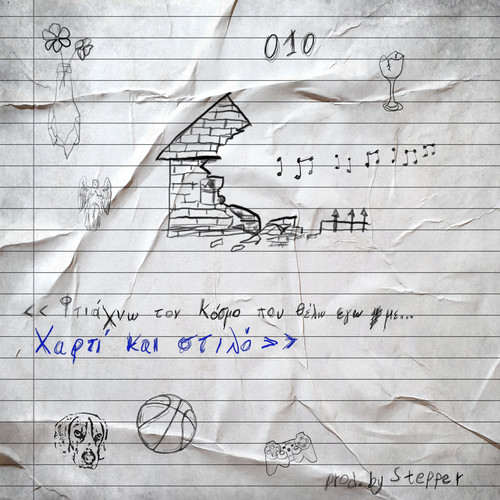 010
<< Φτιάχνω τον Κόσμο που θέλω εγω με...
Χαρτί και στιλό >>
prod. by Stepper